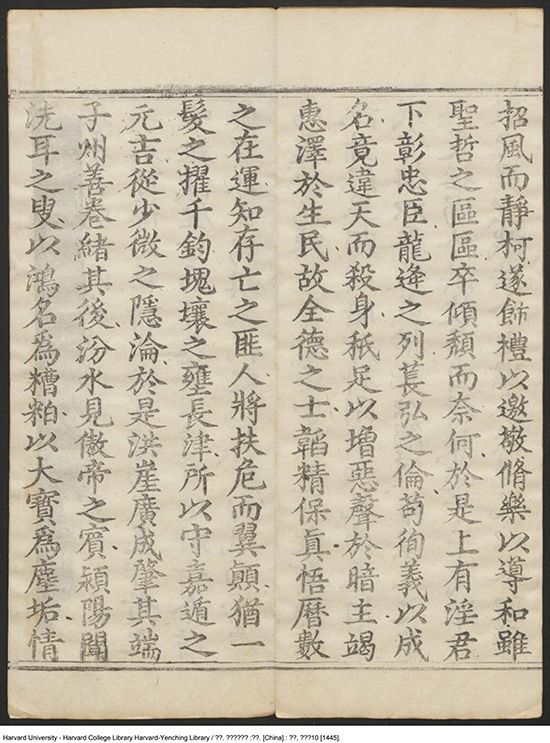 招風而靜柯遂飾禮以邀敬脩樂以導和雖
聖哲之區區卒傾頽而奈何於是上有淫君
下彰忠臣龍逄之列萇弘之倫苟徇義以成
名竟違天而殺身秖足以增惡聲於暗主竭
惠澤於生民故全德之士韜精保真悟曆數
之在運知存亡之匪人將扶危而翼顛猶一
髮之擢千鈞塊壤之壅長津所以守嘉遁之
元吉從少微之隱淪於是洪崖廣成肇其端
子州善卷緒其後汾水見傲帝之賓潁陽聞
洗耳之叟以鴻名爲糟粕以大寶爲塵垢情
Harvard University - Harvard College Library Harvard-Yenching Library / ??. ?????? :??. [China] : ??, ???10 [1445].